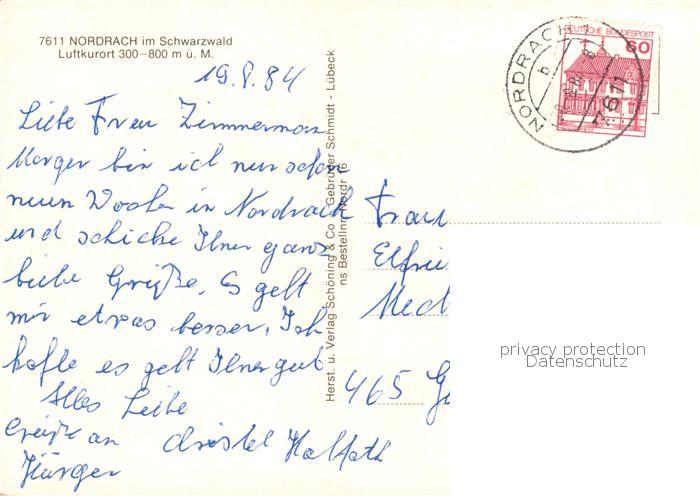 7611 NORDRACH im Schwarzwald
Luftkurort 300–800 m ü. M.
19.8.84
Liebe Frau Zimmerman
Morgen bin ich nun schon
neun Wochen in Nordrach
und schicke Ihnen ganz
liebe Grüße. Es geht
mir etwas besser. Ich
hoffe es geht Ihnen gut
Alles Liebe
Grüße an Christel Halfath
Jürgen
Herst. u. Verlag Schöning & Co · Gebrüder Schmidt - Lübeck
ns Bestellnr. Nordr 16
DEUTSCHE BUNDESPOST
60
NORDRACH
b
7611
Frau
Elfrie
Mech
465 Ge
privacy protection
Datenschutz